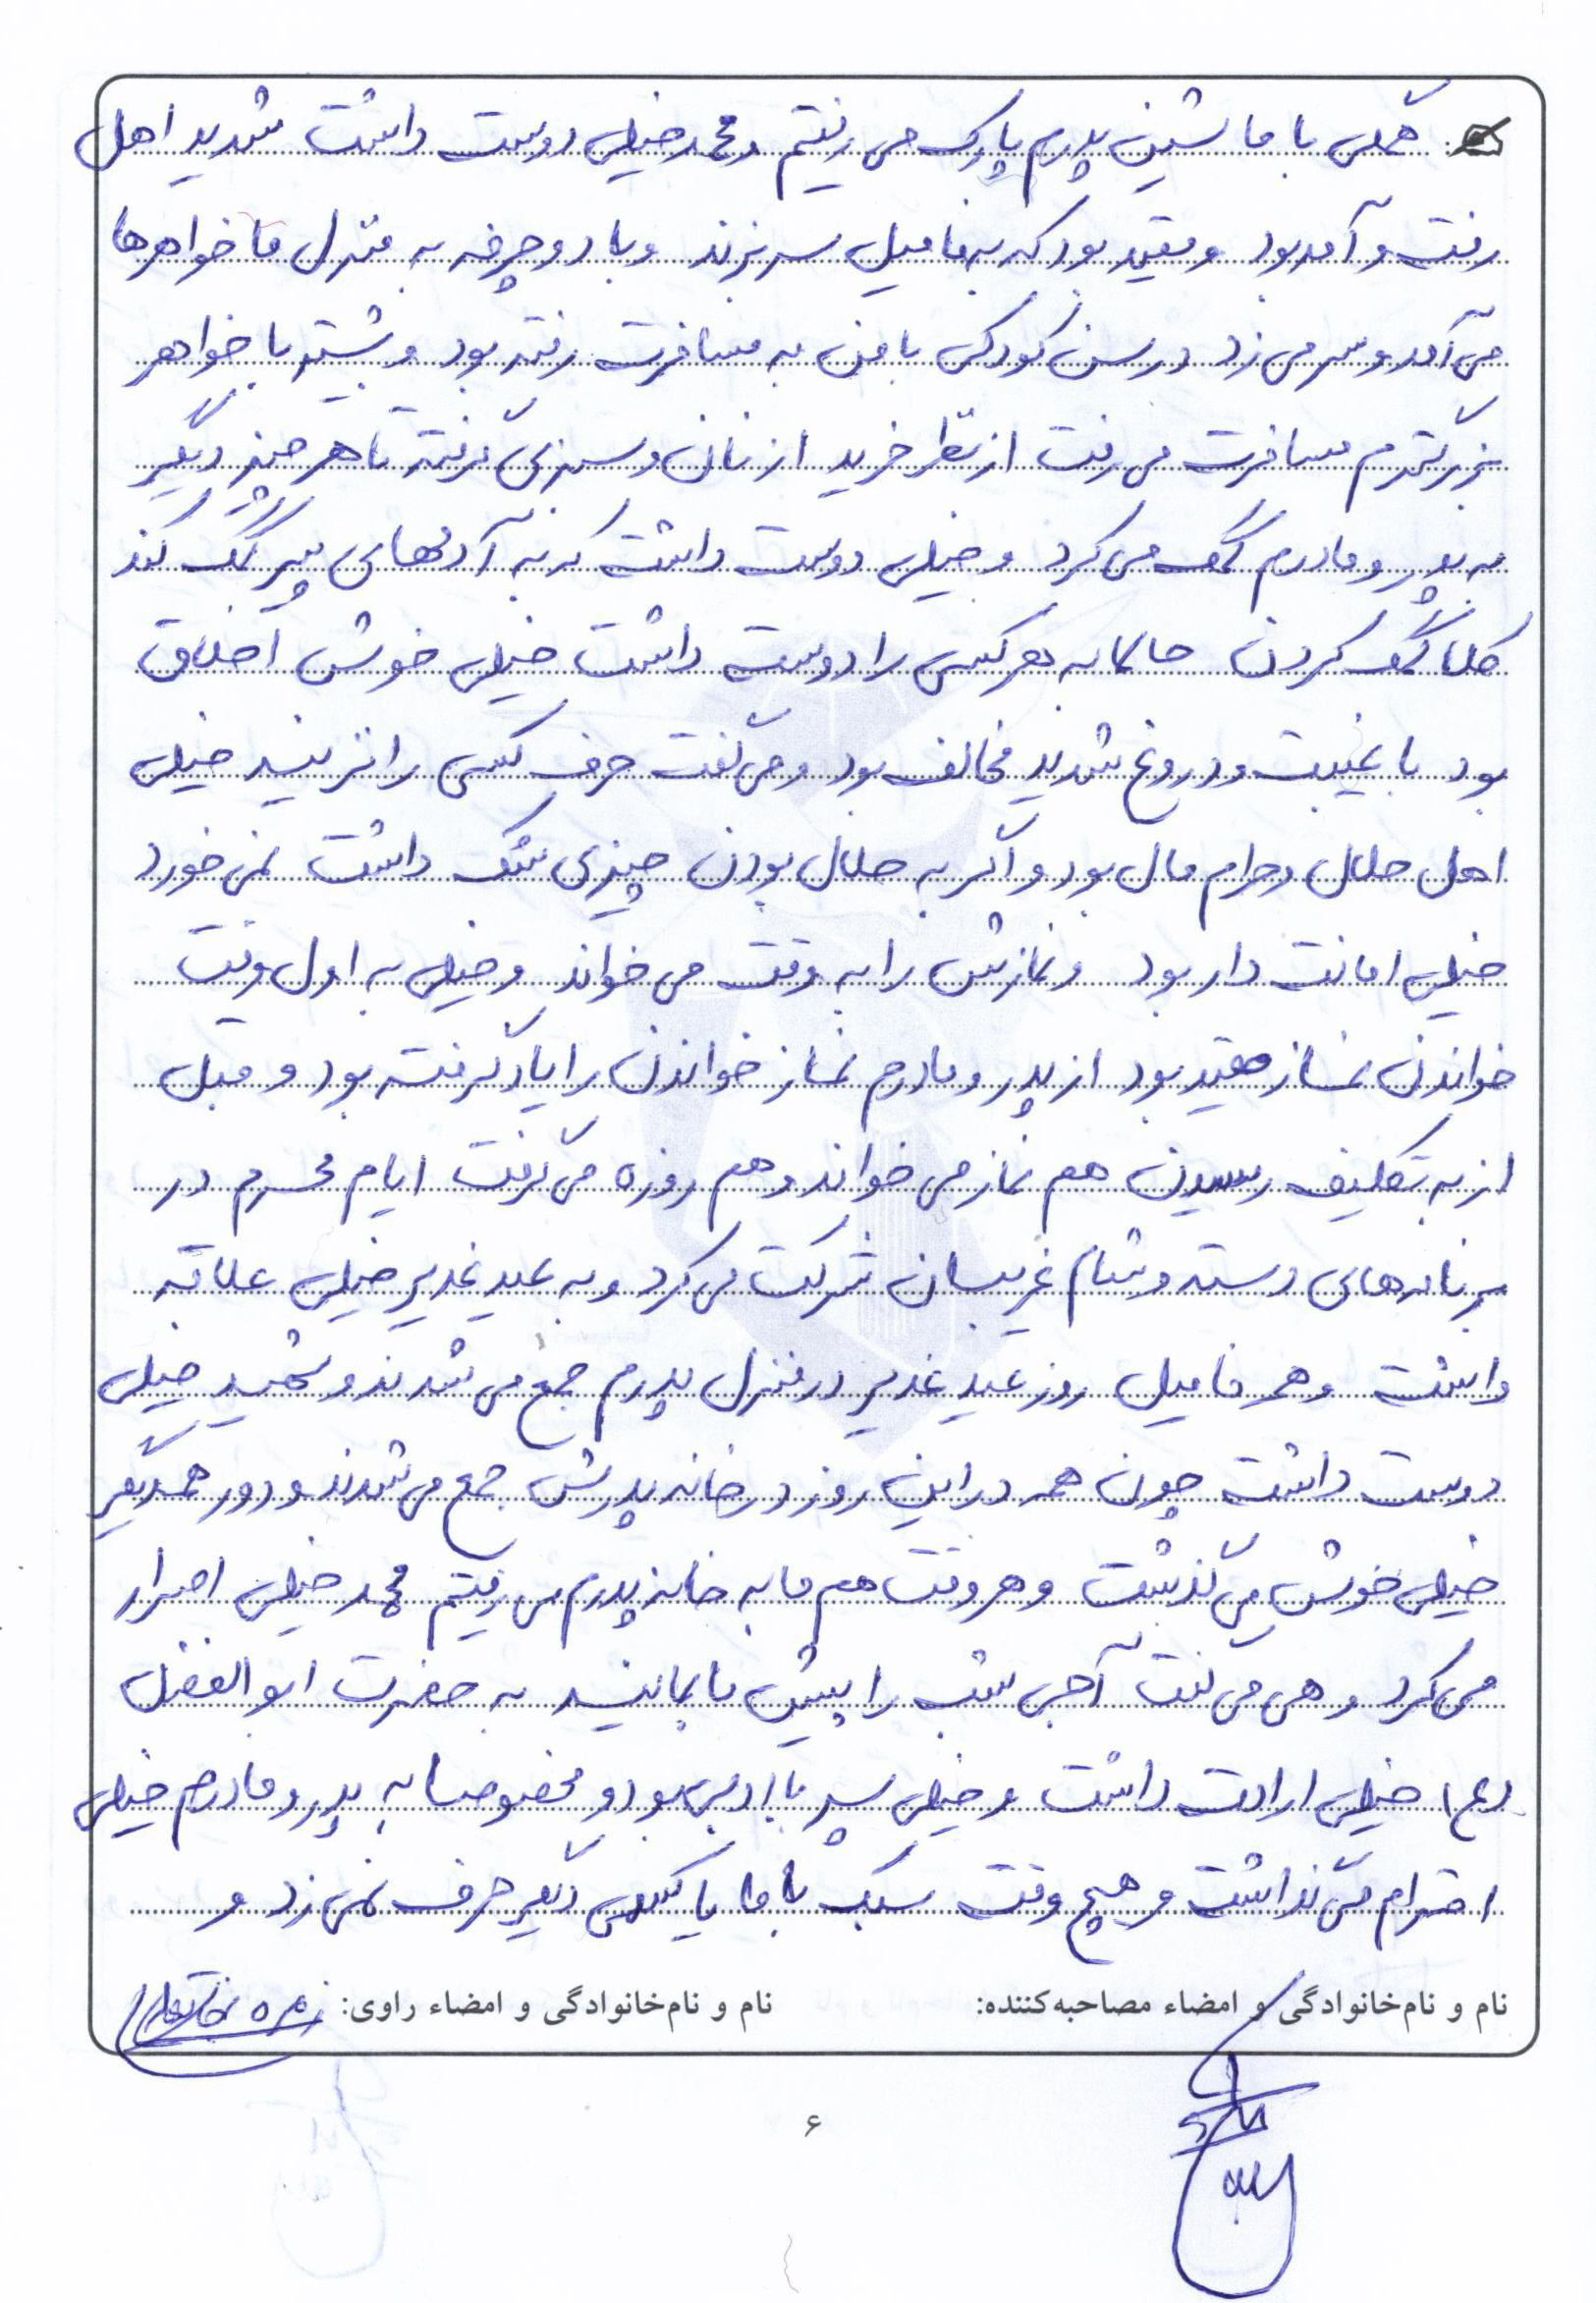 همگی با ماشین پدرم پارک می رفتیم و محمد خیلی دوست داشت شدید اهل
رفت و آمد بود و مقید بود که به فامیل سر بزند و با دوچرخه به منزل ما خواهرها
می آمد و سر می زد در سن کودکی با من به مسافرت رفته بود و بیشتر با خواهر
بزرگترم مسافرت می رفت از نظر خرید از نان و سبزی گرفته تا هر چیز دیگر
به پدر و مادرم کمک می کرد و خیلی دوست داشت که به آدمهای پیر کمک کند
کلا کمک کردن حالا به هر کسی را دوست داشت خیلی خوش اخلاق
بود با غیبت و دروغ شدید مخالف بود و می گفت حرف کسی را نزنید خیلی
اهل حلال و حرام مال بود و اگر به حلال بودن چیزی شک داشت نمی خورد
خیلی امانت دار بود و نمازش را به وقت می خواند و خیلی به اول وقت
خواندن نماز مقید بود از پدر و مادرم نماز خواندن را یاد گرفته بود و قبل
از به تکلیف رسیدن هم نماز می خواند و هم روزه می گرفت ایام محرم در
برنامه های دسته و شام غریبان شرکت می کرد و به عید غدیر خیلی علاقه
داشت و همه فامیل روز عید غدیر در منزل پدرم جمع می شدند و شهید خیلی
دوست داشت چون همه در این روز در خانه پدرش جمع می شدند و دور همدیگر
خیلی خوش می گذشت و هر وقت هم ما به خانه پدرم می رفتیم محمد خیلی اصرار
می کرد و هی می گفت آجی شب را پیش ما بمانید به حضرت ابوالفضل
(ع) خیلی ارادت داشت و خیلی پسر با ادبی بود و مخصوصا به پدر و مادرم خیلی
احترام می گذاشت و هیچ وقت سبک با ما یا کسی دیگر حرف نمی زد و
نام و نام‌خانوادگی و امضاء مصاحبه‌کننده: نام و نام‌خانوادگی و امضاء راوی: زهره
۶